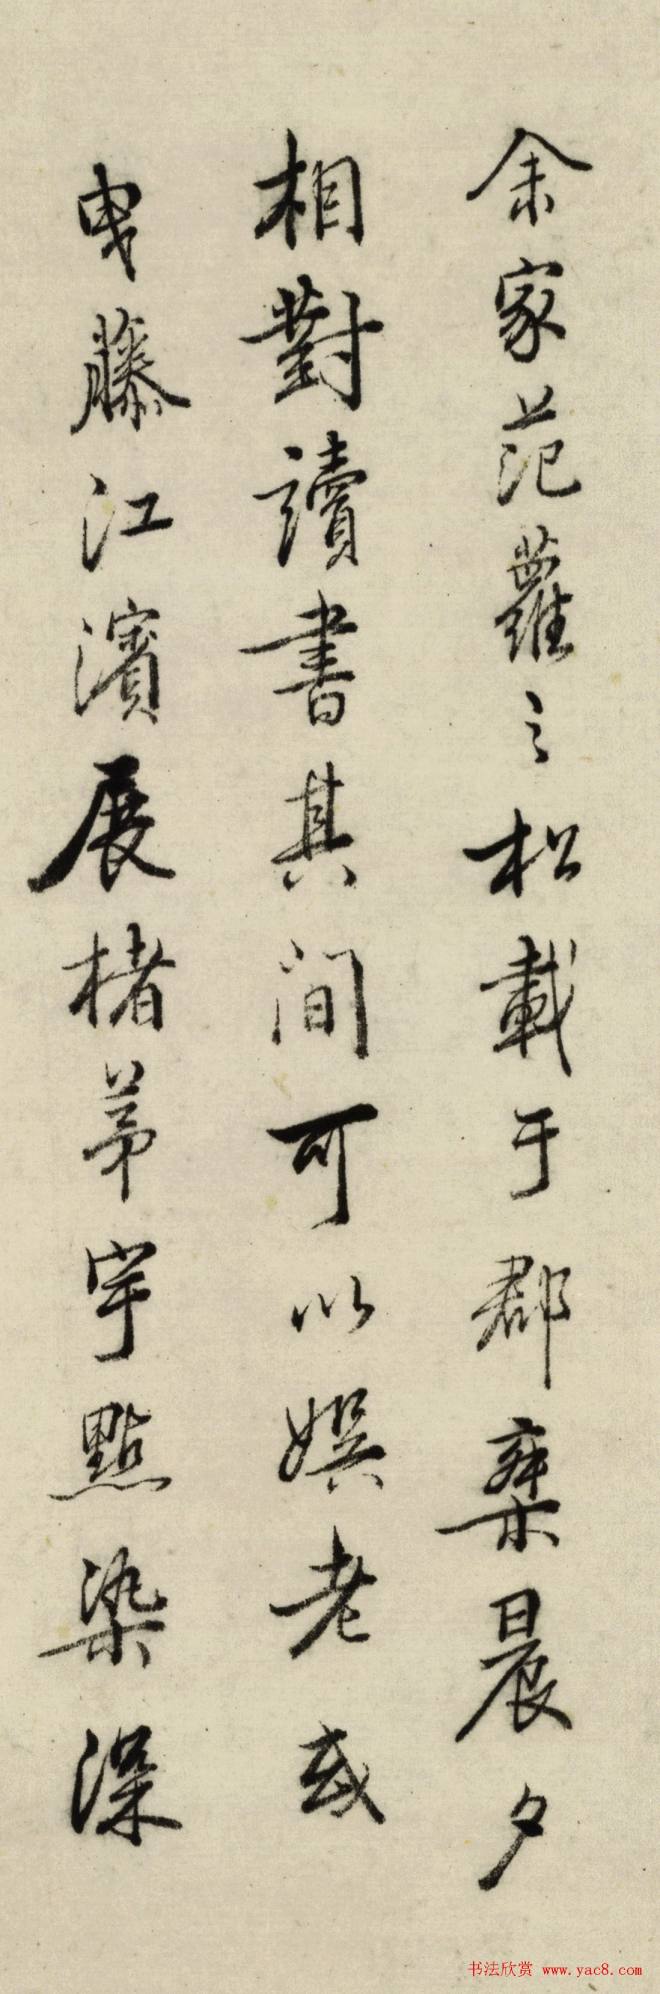 余家范蘿之松載于郡乘晨夕
相對讀書其間可以娛老或
曳藤江濱展楮茅宇點染深
书法欣赏 www.yac8.com